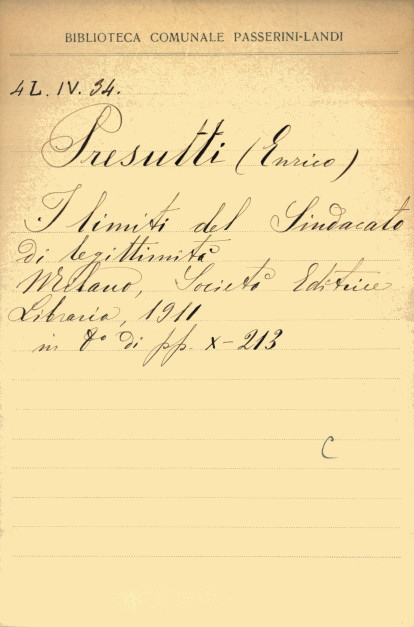 BIBLIOTECA COMUNALE PASSERINI-LANDI
4L.IV.34.
Presutti (Enrico)
I limiti del Sindacato
di legittimità
Milano, Società Editrice
Libraria, 1911
in 8° di pp. X-213
C